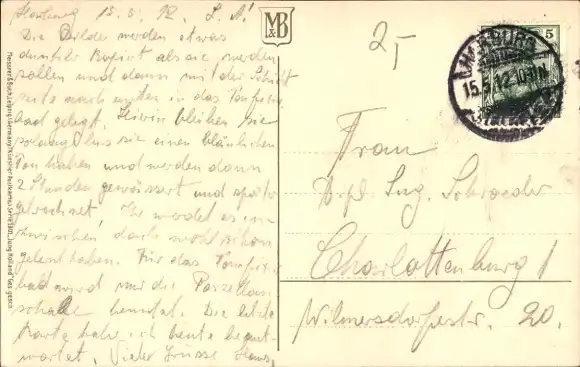 Harburg 15.5.12. L. A!
Die Bilder werden etwas
dunkler kopiert als sie werden
sollen und dann mit der Schicht
seite nach unten in das Tonfixier
bad gelegt. Hierin bleiben sie
solange bis sie einen bläulichen
Ton haben und werden dann
2 Stunden gewässert und später
getrocknet, Ihr werdet es in
zwischen doch wohl schon
gelesen haben. Für das Tonfixier
bad wird nur die Porzellan
schale benutzt. Die letzte
Karte habe ich heute beant
wortet. Viele Grüsse Hans.
M&B
2,-
5
HARBURG
15.5.12.10-11N
Frau
Dipl. Ing. Schroeder
Charlottenburg 1
Wilmersdorferstr. 20.
Meissner & Buch, Leipzig